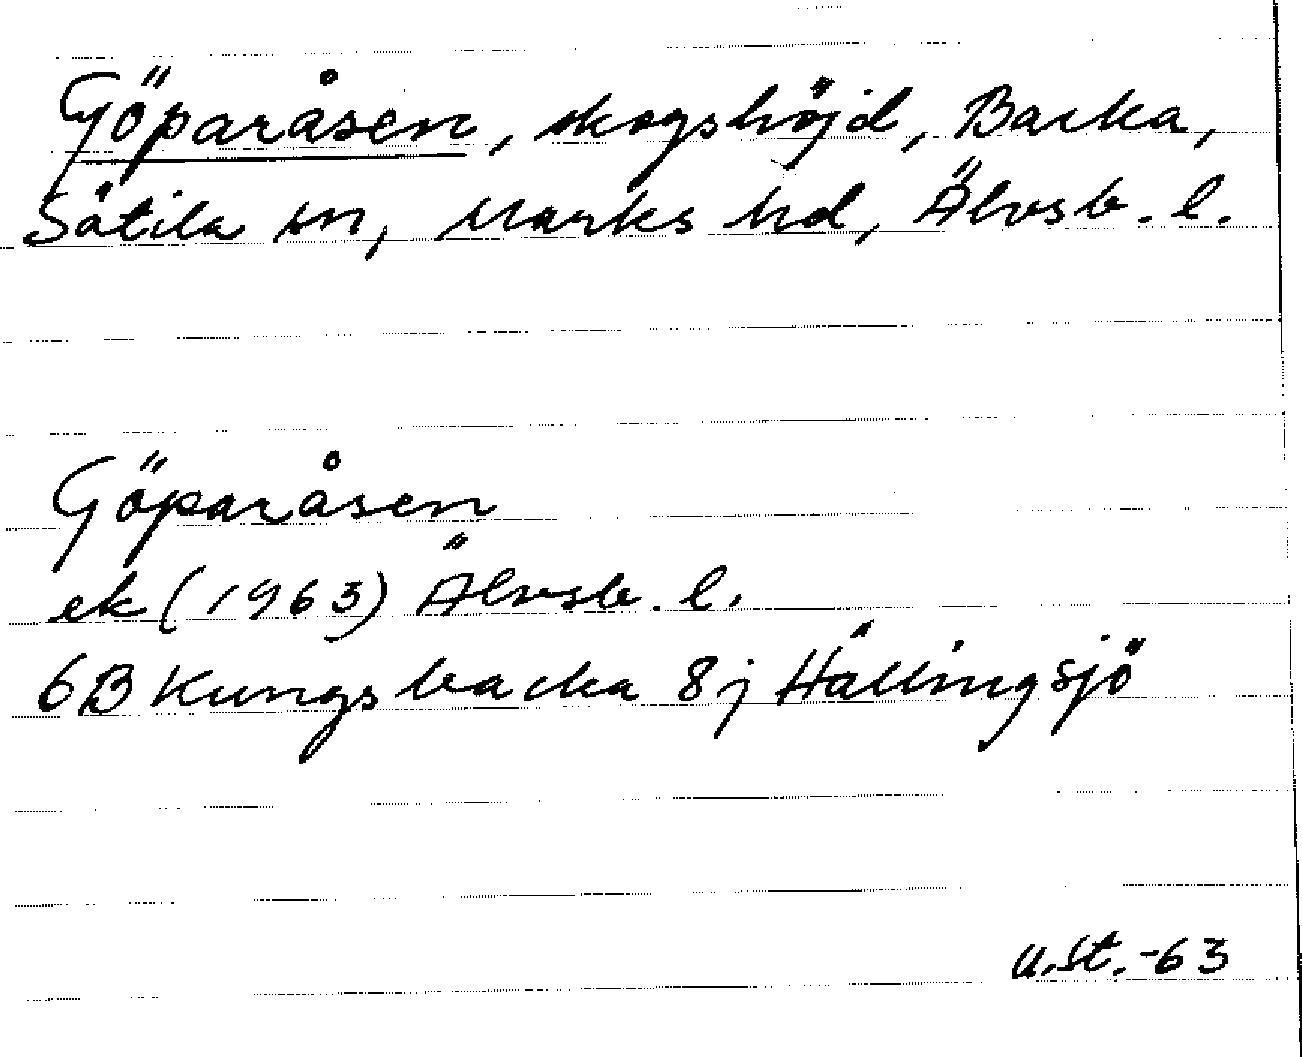 Göparåsen, skogshöjd, Backa,
Sätila sn, Marks hd, Älvsb. l.
Göparåsen
ek (1963) Älvsb. l.
6B Kungsbacka 8j Hällingsjö
U.St. -63